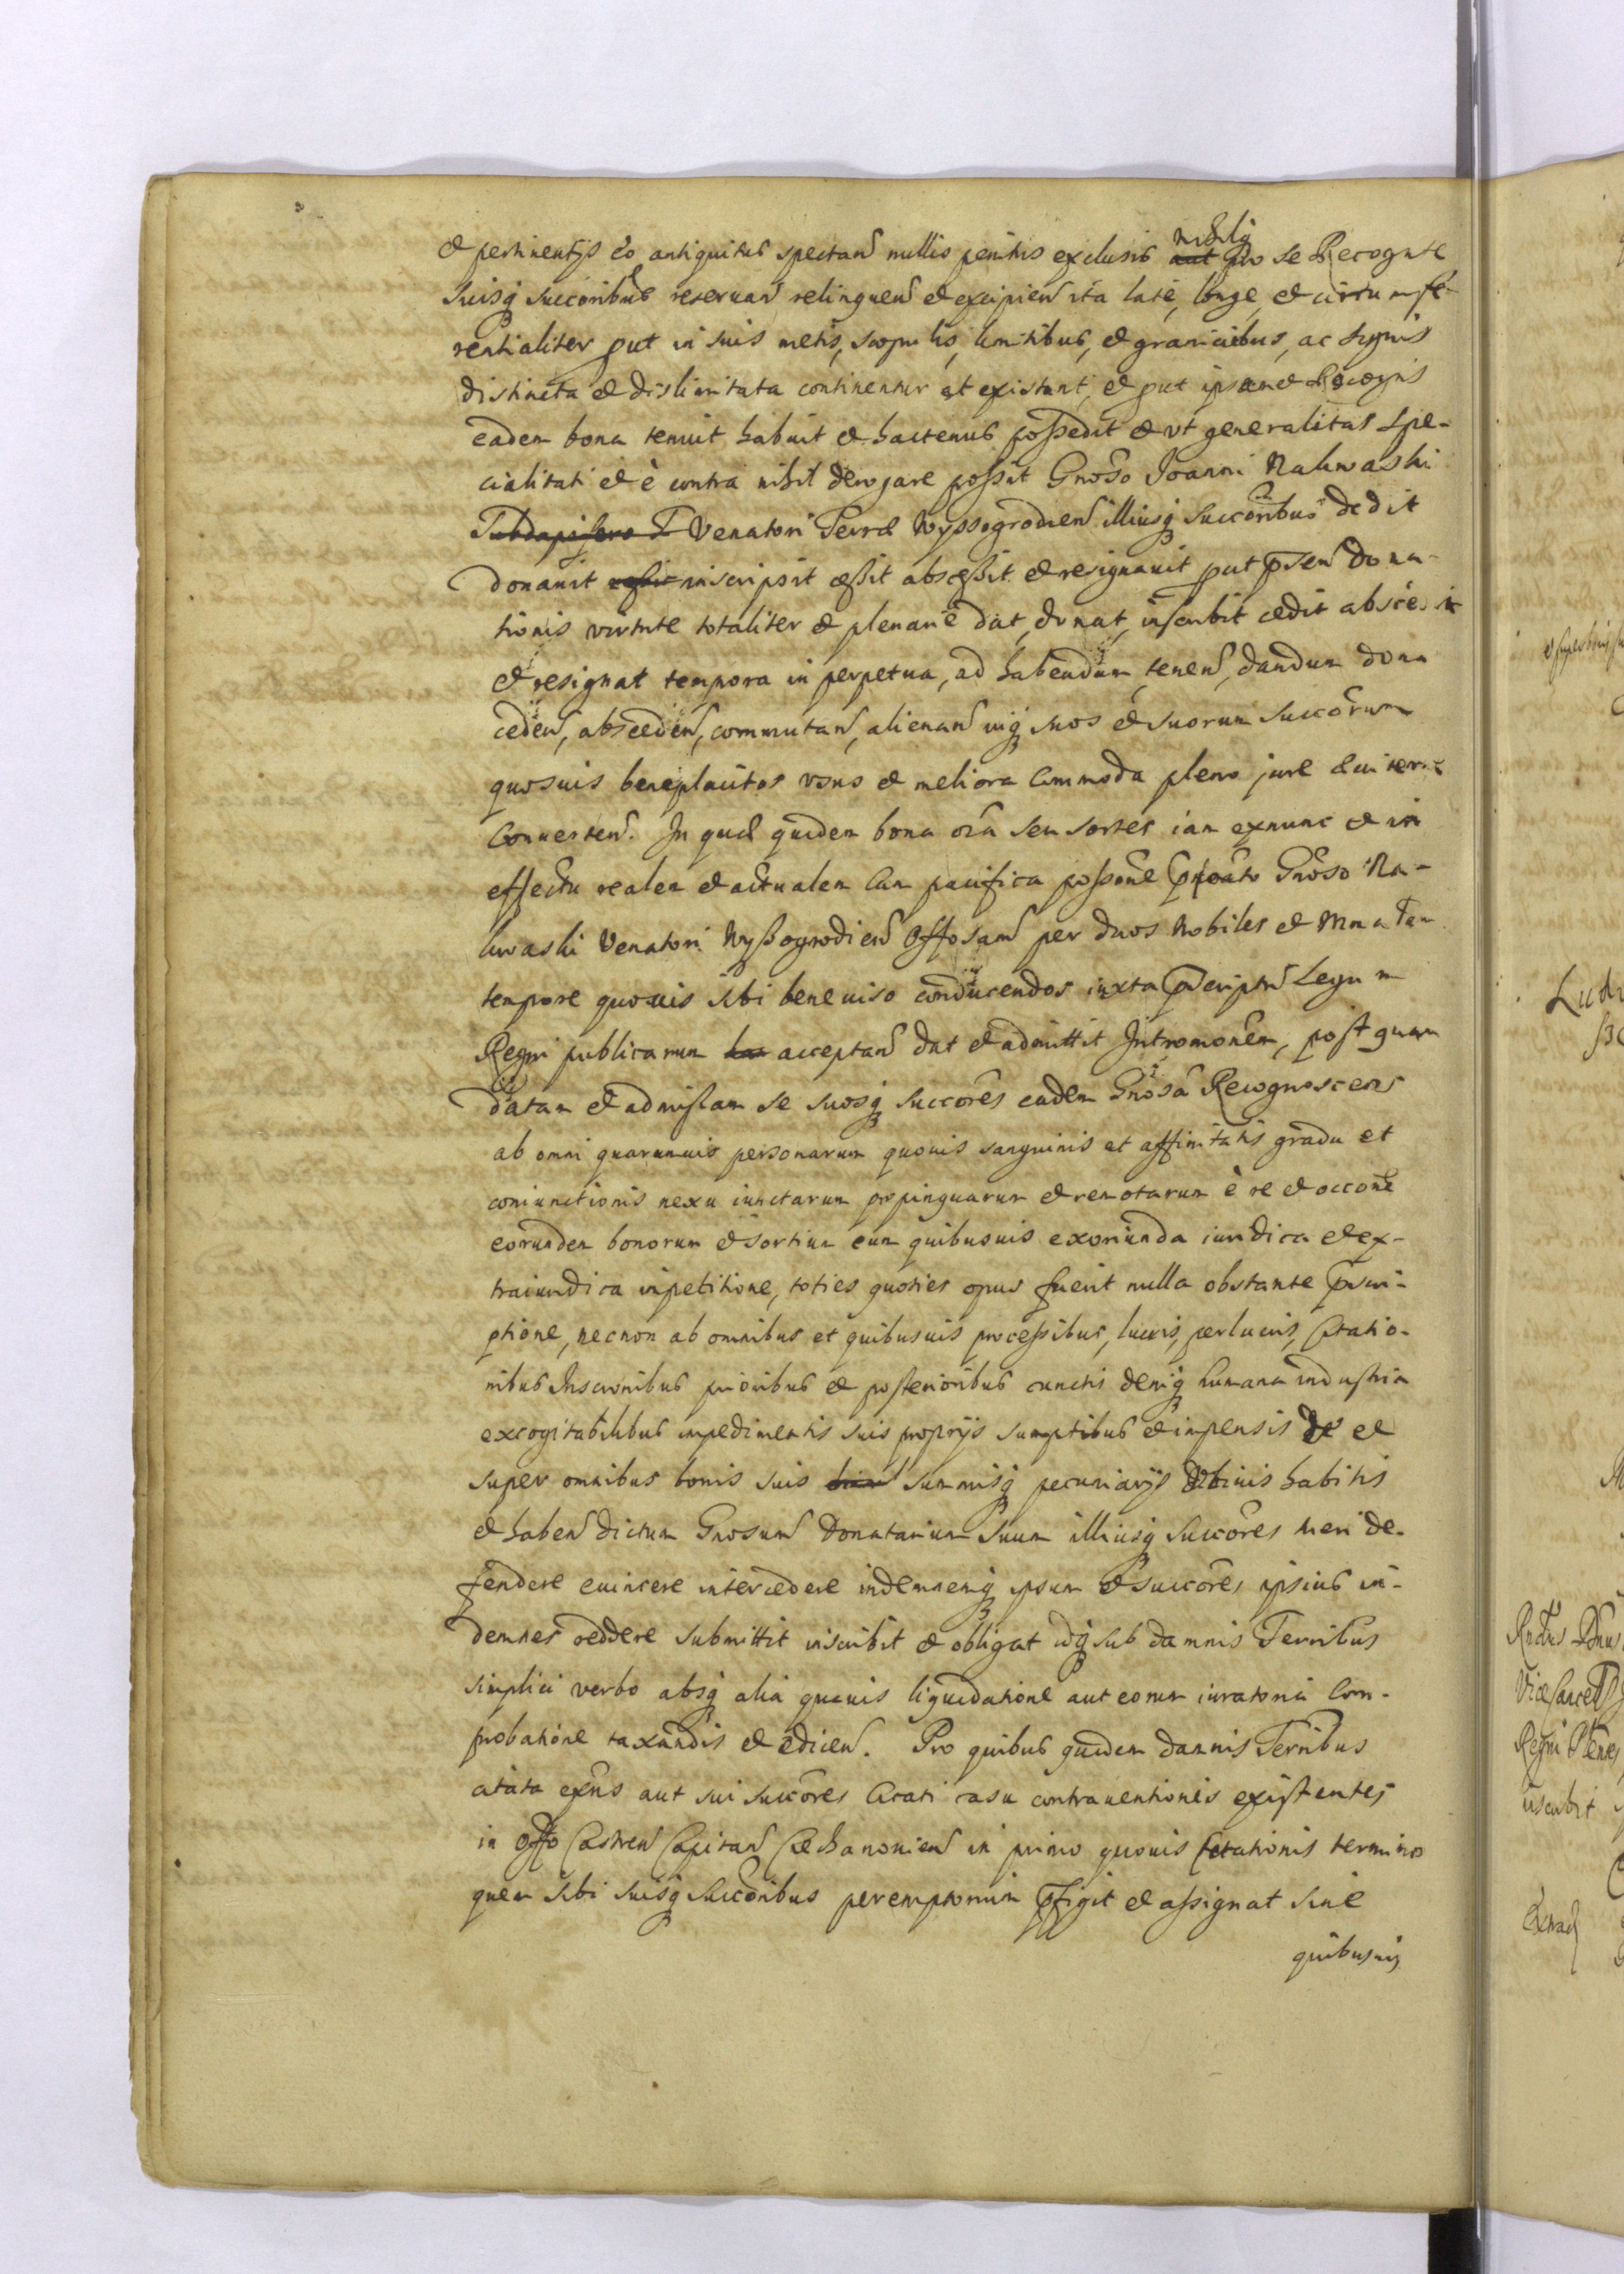 et pertinentijs eo antiquitus spectan nullis penitus exclusis nihilq
aut pro se Recognte
suisq succoribus reseruan relinquen et excipien ita late, longe, et circumfe-
rentialiter put in suis metis, scopulis, limitibus, et graniciebus, ac signis
distincta et dislimitata continentur at existunt, et put ipsamet Recogns
eadem bona tenuit habuit et hactenus possedit et vt generalitas spe-
cialitati et è contra nihil derogare possit Gnoso Joanni Nakwaski
Subdapifero T Venatori Terræ Wyssogrodien illiusq succoribus dedit
donauit inscripsit cessit abscessit et resignauit put psen dona-
tionis virtute totaliter et plenarie dat, donat, inscribit cedit abscedit
et resignat tempora in perpetua, ad habendum, tenen, dandum dona
ceden, absceden, commutan, alienan inq suos et suorum succorum
quosuis beneplacitos vsus et meliora commoda pleno jure
Conuerten. In quæ quidem bona oia seu sortes iam exnunc et in
effectu realem et actualem cum pacifica possone Gnoso Na-
kwaski Venatori Wyssogrodien Offosam per duos Nobiles et Mm
tempore quouis sibi beneuiso conducendos iuxta pscriptu Legum
Regni publicarum acceptan dat et admittit Intromonem, post quam
datam et admissam se suosq succores eadem Gnosa Recognoscens
ab omni quarumuis personarum quouis sanguinis et affinitatis gradu et
coniunctionis nexu iunctarum propinquarum et remotarum è re et occone
eorundem bonorum et sortium cum quibusuis exoriunda iuridica et ex-
traiuridica inpetitione, toties quoties opus fuerit nulla obstante pscri-
ptione, necnon ab omnibus et quibusuis processibus, lucris, perlucris, Citatio-
nibus Inscronibus prioribus et posterioribus cunctis deniq humana industria
excogitabilibus impedimentis suis proprijs sumptibus et impensis de et
super omnibus bonis suis summisq pecuniarijs vbiuis habitis
et haben dictum Gnosum Donatarium suum illiusq succores tueri de-
fendere euincere intercedere indemnemq ipsum et succores ipsius in-
demnes reddere submittit inscribit et obligat idq sub damnis Terribus
simplici verbo absq alia quauis liquidatione aut eorum iuratoria Com-
probatione taxandis et edicen. Pro quibus quidem damnis Terribus
citata exns aut sui succores Citati casu contrauentionis existentes
in Offo Castren Capitan Ciechanouien in primo quouis Citationis termino
quem sibi suisq succoribus peremptorium pfigit et assignat sine
quibusuis